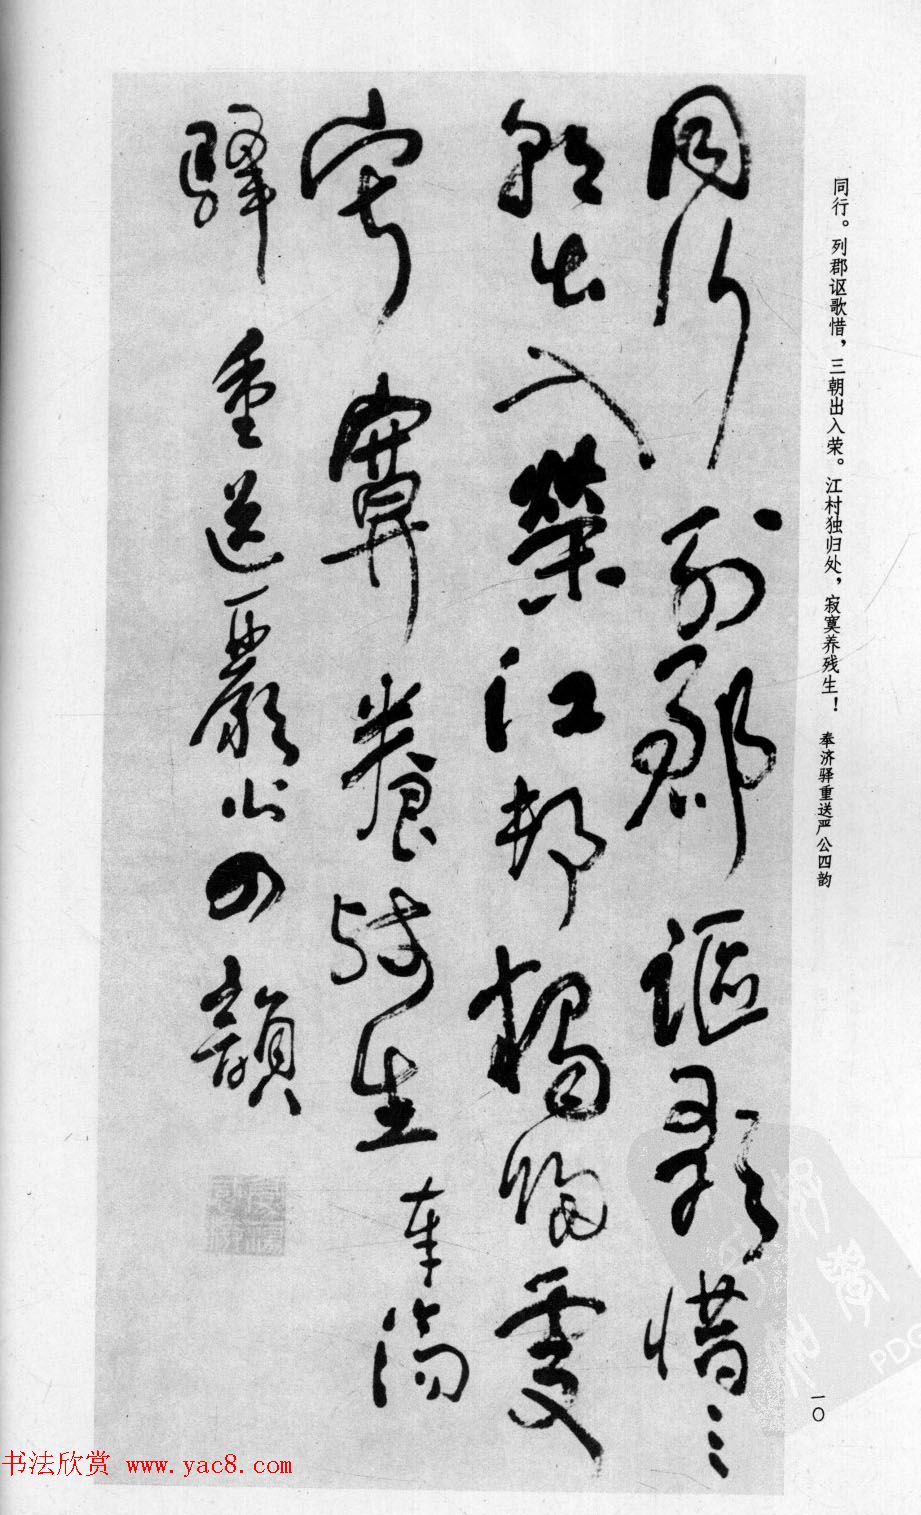 同行。列郡讴歌惜，三朝出入荣。江村独归处，寂寞养残生！ 奉济驿重送严公四韵
同行列郡謳歌惜三
朝出入榮江村獨歸處
寂寞養殘生奉濟
驛重送嚴公四韻
一〇
书法欣赏 www.yac8.com